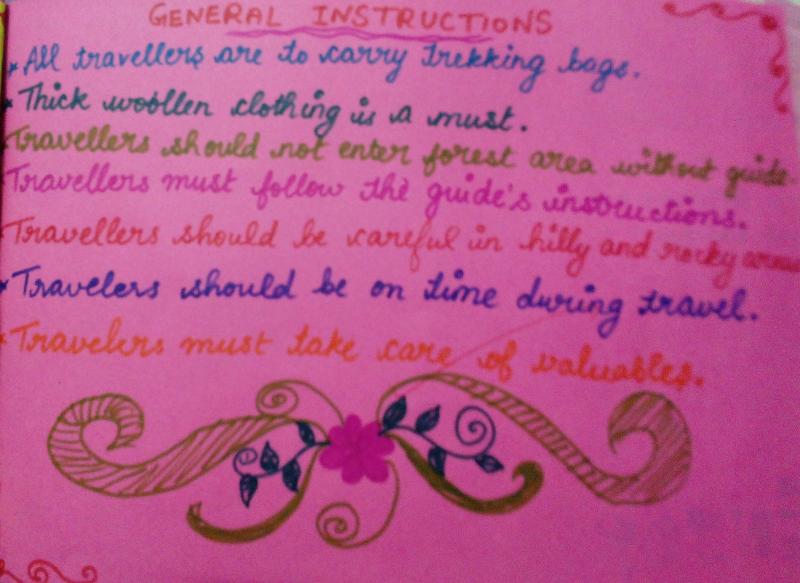 GENERAL INSTRUCTIONS
* All travellers are to carry trekking bags.
* Thick woollen clothing is a must.
Travellers should not enter forest area without guide.
Travellers must follow the guide's instructions.
Travellers should be careful in hilly and rocky areas
* Travelers should be on time during travel.
* Travelers must take care of valuables.